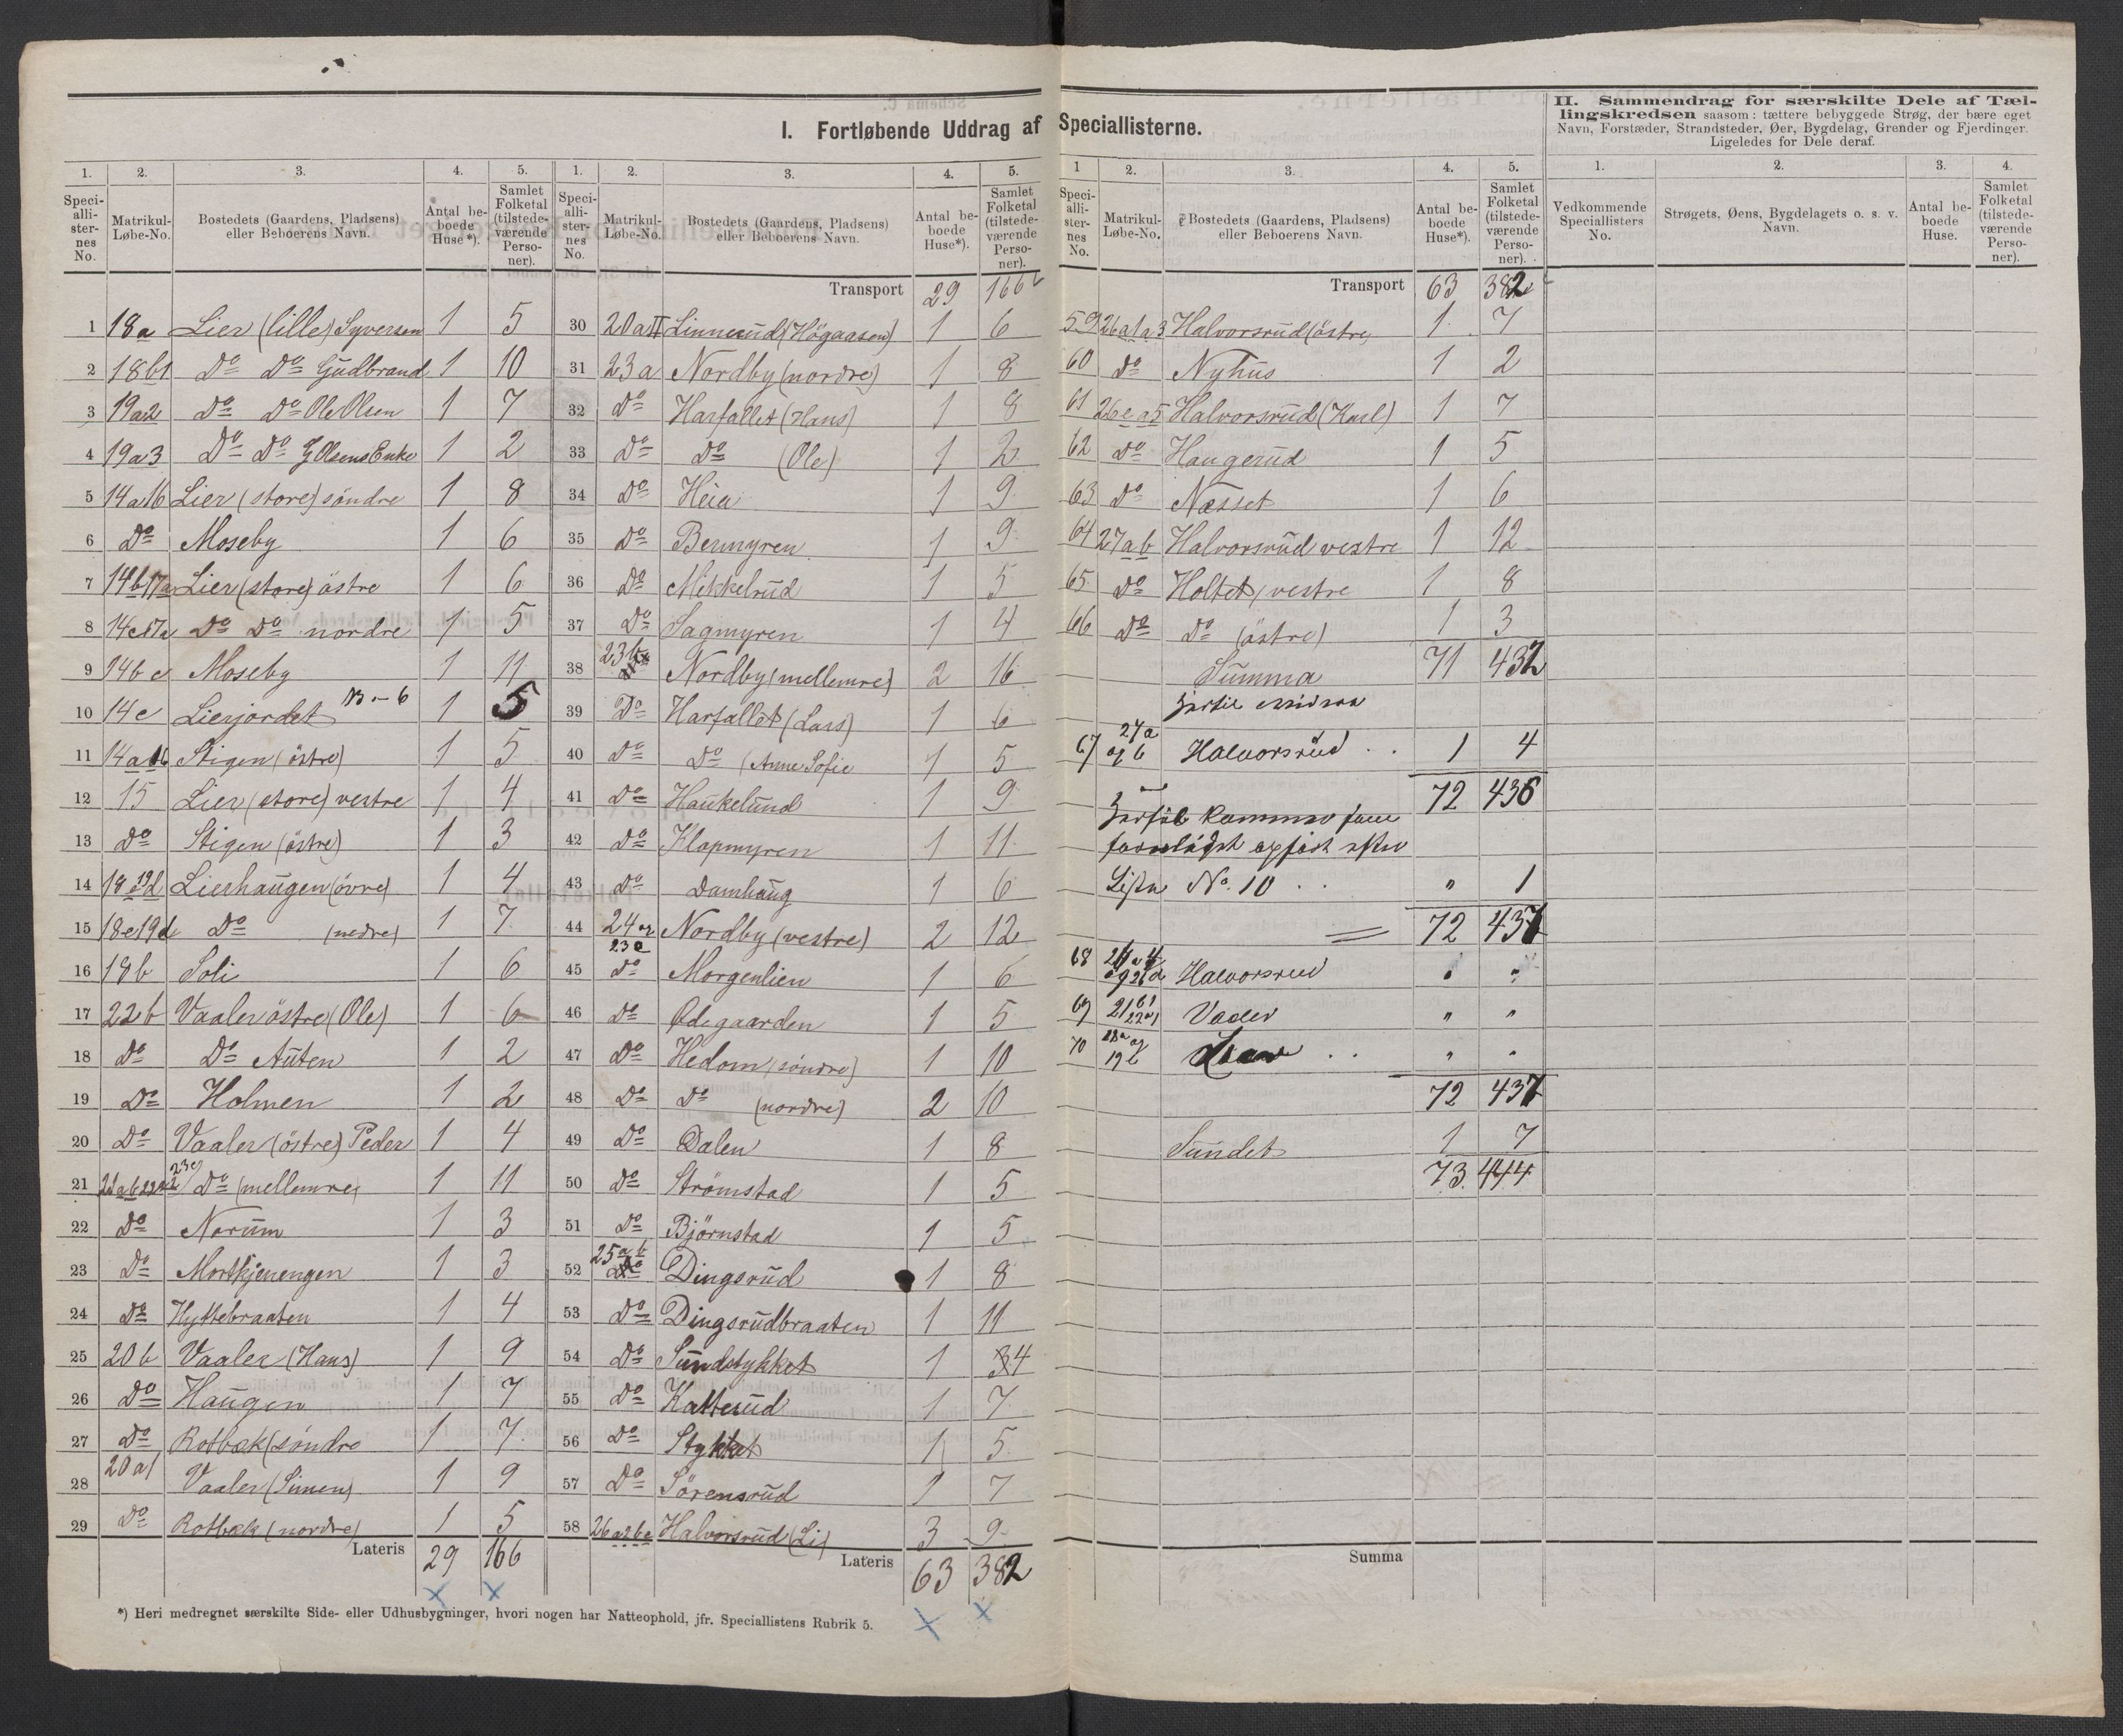 I. Fortløbende Uddrag af Speciallisterne.
II. Sammendrag for særskilte Dele af Tællingskredsen saasom: tættere bebyggede Strøg, der bære eget
Navn, Forstæder, Strandsteder, Øer, Bygdelag, Grender og Fjerdinger.
Ligeledes for Dele deraf.
1. 2. 3. 4. 5.
Specialli-sternes No. Matrikul-Løbe-No. Bostedets (Gaardens, Pladsens) eller Beboerens Navn. Antal beboede Huse*). Samlet Folketal (tilstedeværende Personer).
1 18a Lier (lille) Syversen 1 5
2 18b1 Do Do Gudbrand 1 10
3 19a2 Do Do Ole Olsen 1 7
4 19a3 Do Do G Olsens Enke 1 2
5 14a16 Lier (store) söndre 1 8
6 Do Moseby 1 6
7 14b17a Lier (store) östre 1 6
8 14c17a Do Do nordre 1 5
9 14b c Moseby 1 11
10 14c Lierjordet 1 5
11 14a16 Stigen (östre) 1 5
12 15 Lier (store) vestre 1 4
13 Do Stigen (östre) 1 3
14 18 19d Lierhaugen (övre) 1 4
15 18e19d Do (nedre) 1 7
16 19b Soli 1 6
17 22b Vaaler östre (Ole) 1 6
18 Do Do Auten 1 2
19 Do Holmen 1 2
20 Do Vaaler (östre) Peder 1 4
21 Do (mellemre) 1 11
22 Do Norum 1 3
23 Do Mortkjenengen 1 3
24 Do Hyttebraaten 1 4
25 20b Vaaler (Hans) 1 9
26 Do Haugen 1 7
27 Do Rotbæk (söndre 1 7
28 20a1 Vaaler (Simen) 1 9
29 Do Rotbæk (nordre) 1 5
Lateris 29 166
1. 2. 3. 4. 5.
Specialli-sternes No. Matrikul-Løbe-No. Bostedets (Gaardens, Pladsens) eller Beboerens Navn. Antal beboede Huse*). Samlet Folketal (tilstedeværende Personer).
Transport 29 166
30 20aII Linnerud (Högaasen) 1 6
31 23a Nordby (nordre) 1 8
32 Do Harfallet (Hans) 1 8
33 Do Do (Ole) 1 2
34 Do Heia 1 9
35 Do Bermyren 1 9
36 Do Mikkelrud 1 5
37 Do Sagmyren 1 4
38 23b Nordby (mellemre) 2 16
39 Do Harfallet (Lars) 1 6
40 Do Do (Anne Sofie 1 5
41 Do Haukelund 1 9
42 Do Klopmyren 1 11
43 Do Damhaug 1 6
44 24 og 23c Nordby (vestre) 2 12
45 Do Morgenlien 1 6
46 Do Ödegaarden 1 5
47 Do Hedom (söndre) 1 10
48 Do Do (nordre) 2 10
49 Do Dalen 1 8
50 Do Strömstad 1 5
51 Do Björnstad 1 5
52 25a b Dingsrud 1 8
53 Do Dingsrudbraaten 1 11
54 Do Sundstykket 1 4
55 Do Katterud 1 7
56 Do Stykket 1 5
57 Do Sörensrud 1 7
58 26a2 b c Halvorsrud (Li) 3 9
Lateris 63 382
1 2. 3. 4. 5.
Specialli-sternes No. Matrikul-Løbe-No. Bostedets (Gaardens, Pladsens) eller Beboerens Navn. Antal beboede Huse*). Samlet Folketal (tilstedeværende Personer).
Transport 63 382
59 26a1a3 Halvorsrud (östre) 1 7
60 Do Nyhus 1 2
61 26e a5 Halvorsrud (Karl) 1 7
62 Do Haugerud 1 5
63 Do Næsset 1 6
64 27a b Halvorsrud vestre 1 12
65 Do Holtet (vestre 1 8
66 Do Do (östre) 1 3
Summa 71 432
67 27a og b Halvorsrud 1 4
72 436
Hertil kommer som
Liste No. 10 " 1
72 437
68 Halvorsrud " "
69 Vaaler " "
70 18a og 19b Lier " "
72 437
Sundet 1 7
73 444
Summa
1. 2. 3. 4.
Vedkommende Speciallisters No. Strøgets, Øens, Bygdelagets o. s. v. Navn. Antal beboede Huse. Samlet Folketal (tilstedeværende Personer).
*) Heri medregnet særskilte Side- eller Udhusbygninger, hvori nogen har Natteophold, jfr. Speciallistens Rubrik 5.